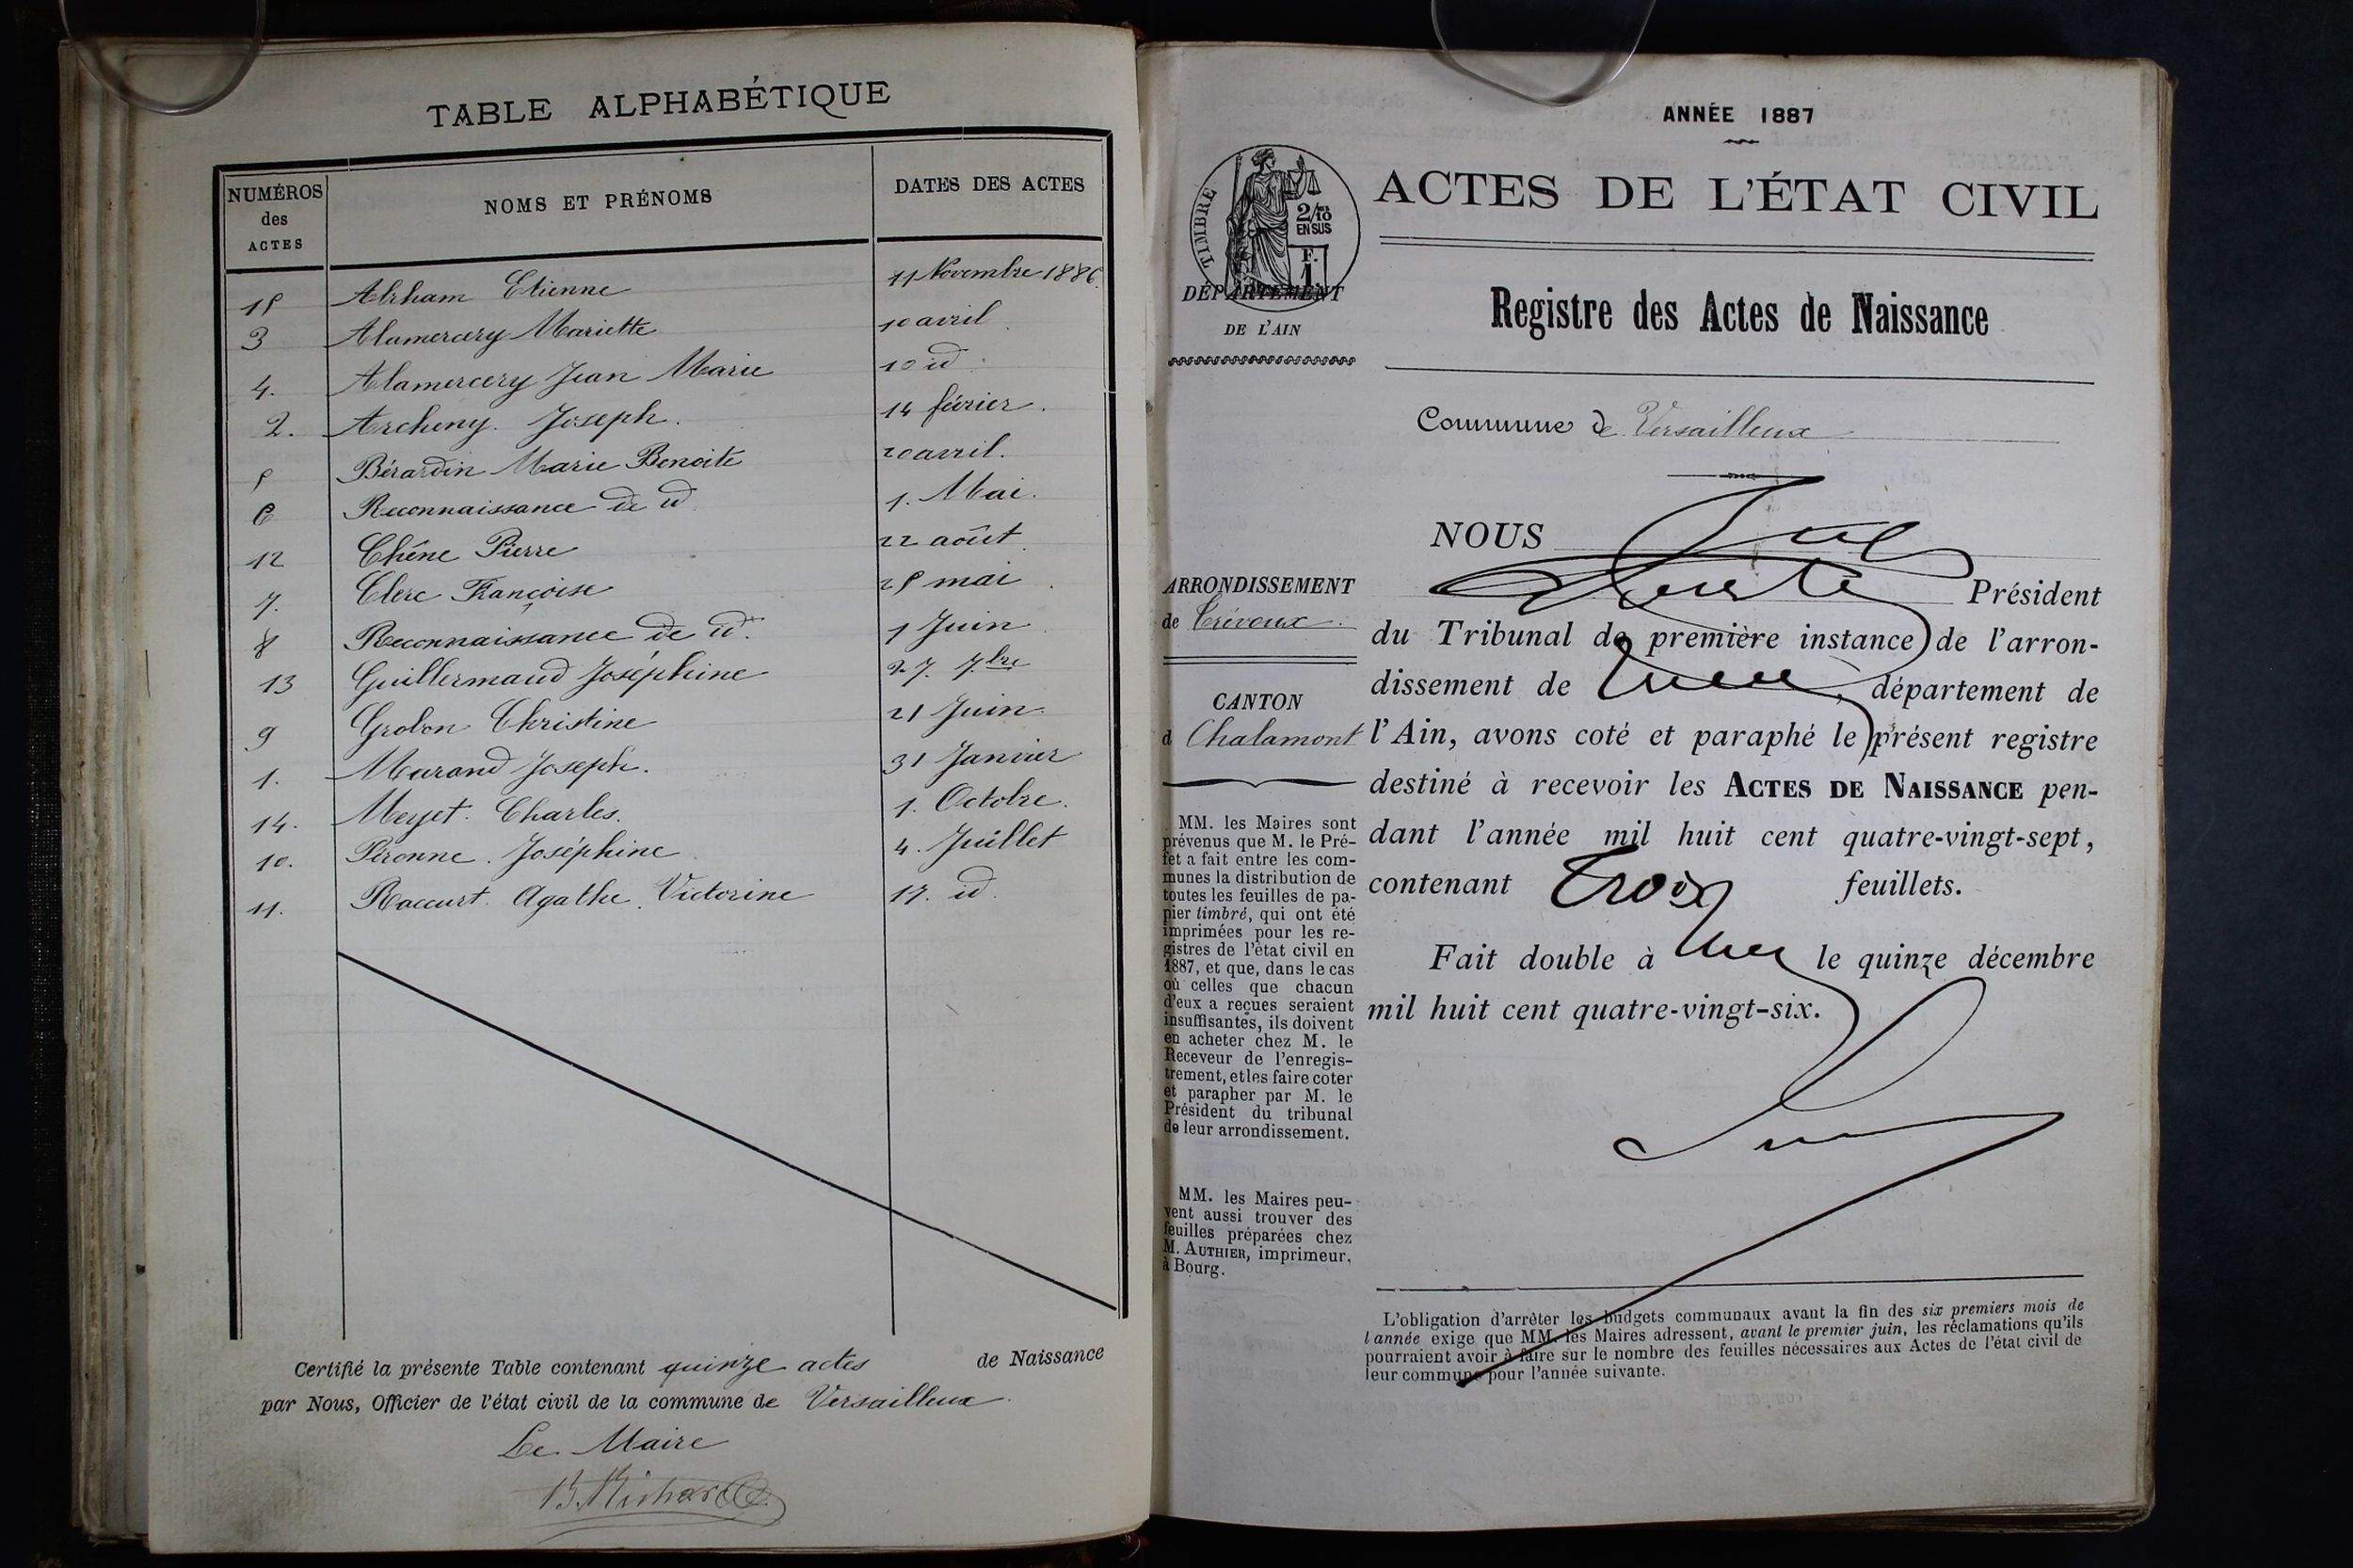 TABLE ALPHABÉTIQUE
NUMÉROS des ACTES NOMS ET PRÉNOMS DATES DES ACTES
15 Abrham Etienne 11 Novembre 1886.
3 Alamercery Mariette 10 avril
4. Alamercery Jean Marie 10 id
2. Archeny. Joseph. 14 février.
5 Bérardin Marie Benoite 20 avril.
6 Reconnaissance de id 1. Mai.
12 Chêne Pierre 22 août
7. Clerc Françoise 25 mai
8 Reconnaissance de id. 1 Juin
13 Guillermaud Joséphine 27. 7bre
9 Grobon Christine 21 Juin.
1. Marand Joseph. 31 Janvier
14. Meyet. Charles. 1. Octobre.
10. Péronne. Joséphine 4. Juillet
11. Raccurt. Agathe Victorine 17. id
Certifié la présente Table contenant quinze actes de Naissance
par Nous, Officier de l'état civil de la commune de Versailleux.
Le Maire
B. Richard
ANNÉE 1887
TIMBRE
2/10
EN SUS
F.
1.
ACTES DE L'ÉTAT CIVIL
DÉPARTEMENT
DE L'AIN
Registre des Actes de Naissance
Commune de Versailleux
ARRONDISSEMENT
de Trévoux.
CANTON
d Chalamont
MM. les Maires sont
prévenus que M. le Pré-
fet a fait entre les com-
munes la distribution de
toutes les feuilles de pa-
pier timbré, qui ont été
imprimées pour les re-
gistres de l'état civil en
1887, et que, dans le cas
où celles que chacun
d'eux a reçues seraient
insuffisantes, ils doivent
en acheter chez M. le
Receveur de l'enregis-
trement, et les faire coter
et parapher par M. le
Président du tribunal
de leur arrondissement.
MM. les Maires peu-
vent aussi trouver des
feuilles préparées chez
M. AUTHIER, imprimeur,
à Bourg.
NOUS
Président
du Tribunal de première instance de l'arron-
dissement de , département de
l'Ain, avons coté et paraphé le présent registre
destiné à recevoir les ACTES DE NAISSANCE pen-
dant l'année mil huit cent quatre-vingt-sept,
contenant Trois feuillets.
Fait double à le quinze décembre
mil huit cent quatre-vingt-six.
L'obligation d'arrêter les budgets communaux avant la fin des six premiers mois de
l'année exige que MM. les Maires adressent, avant le premier juin, les réclamations qu'ils
pourraient avoir à faire sur le nombre des feuilles nécessaires aux Actes de l'état civil de
leur commune pour l'année suivante.